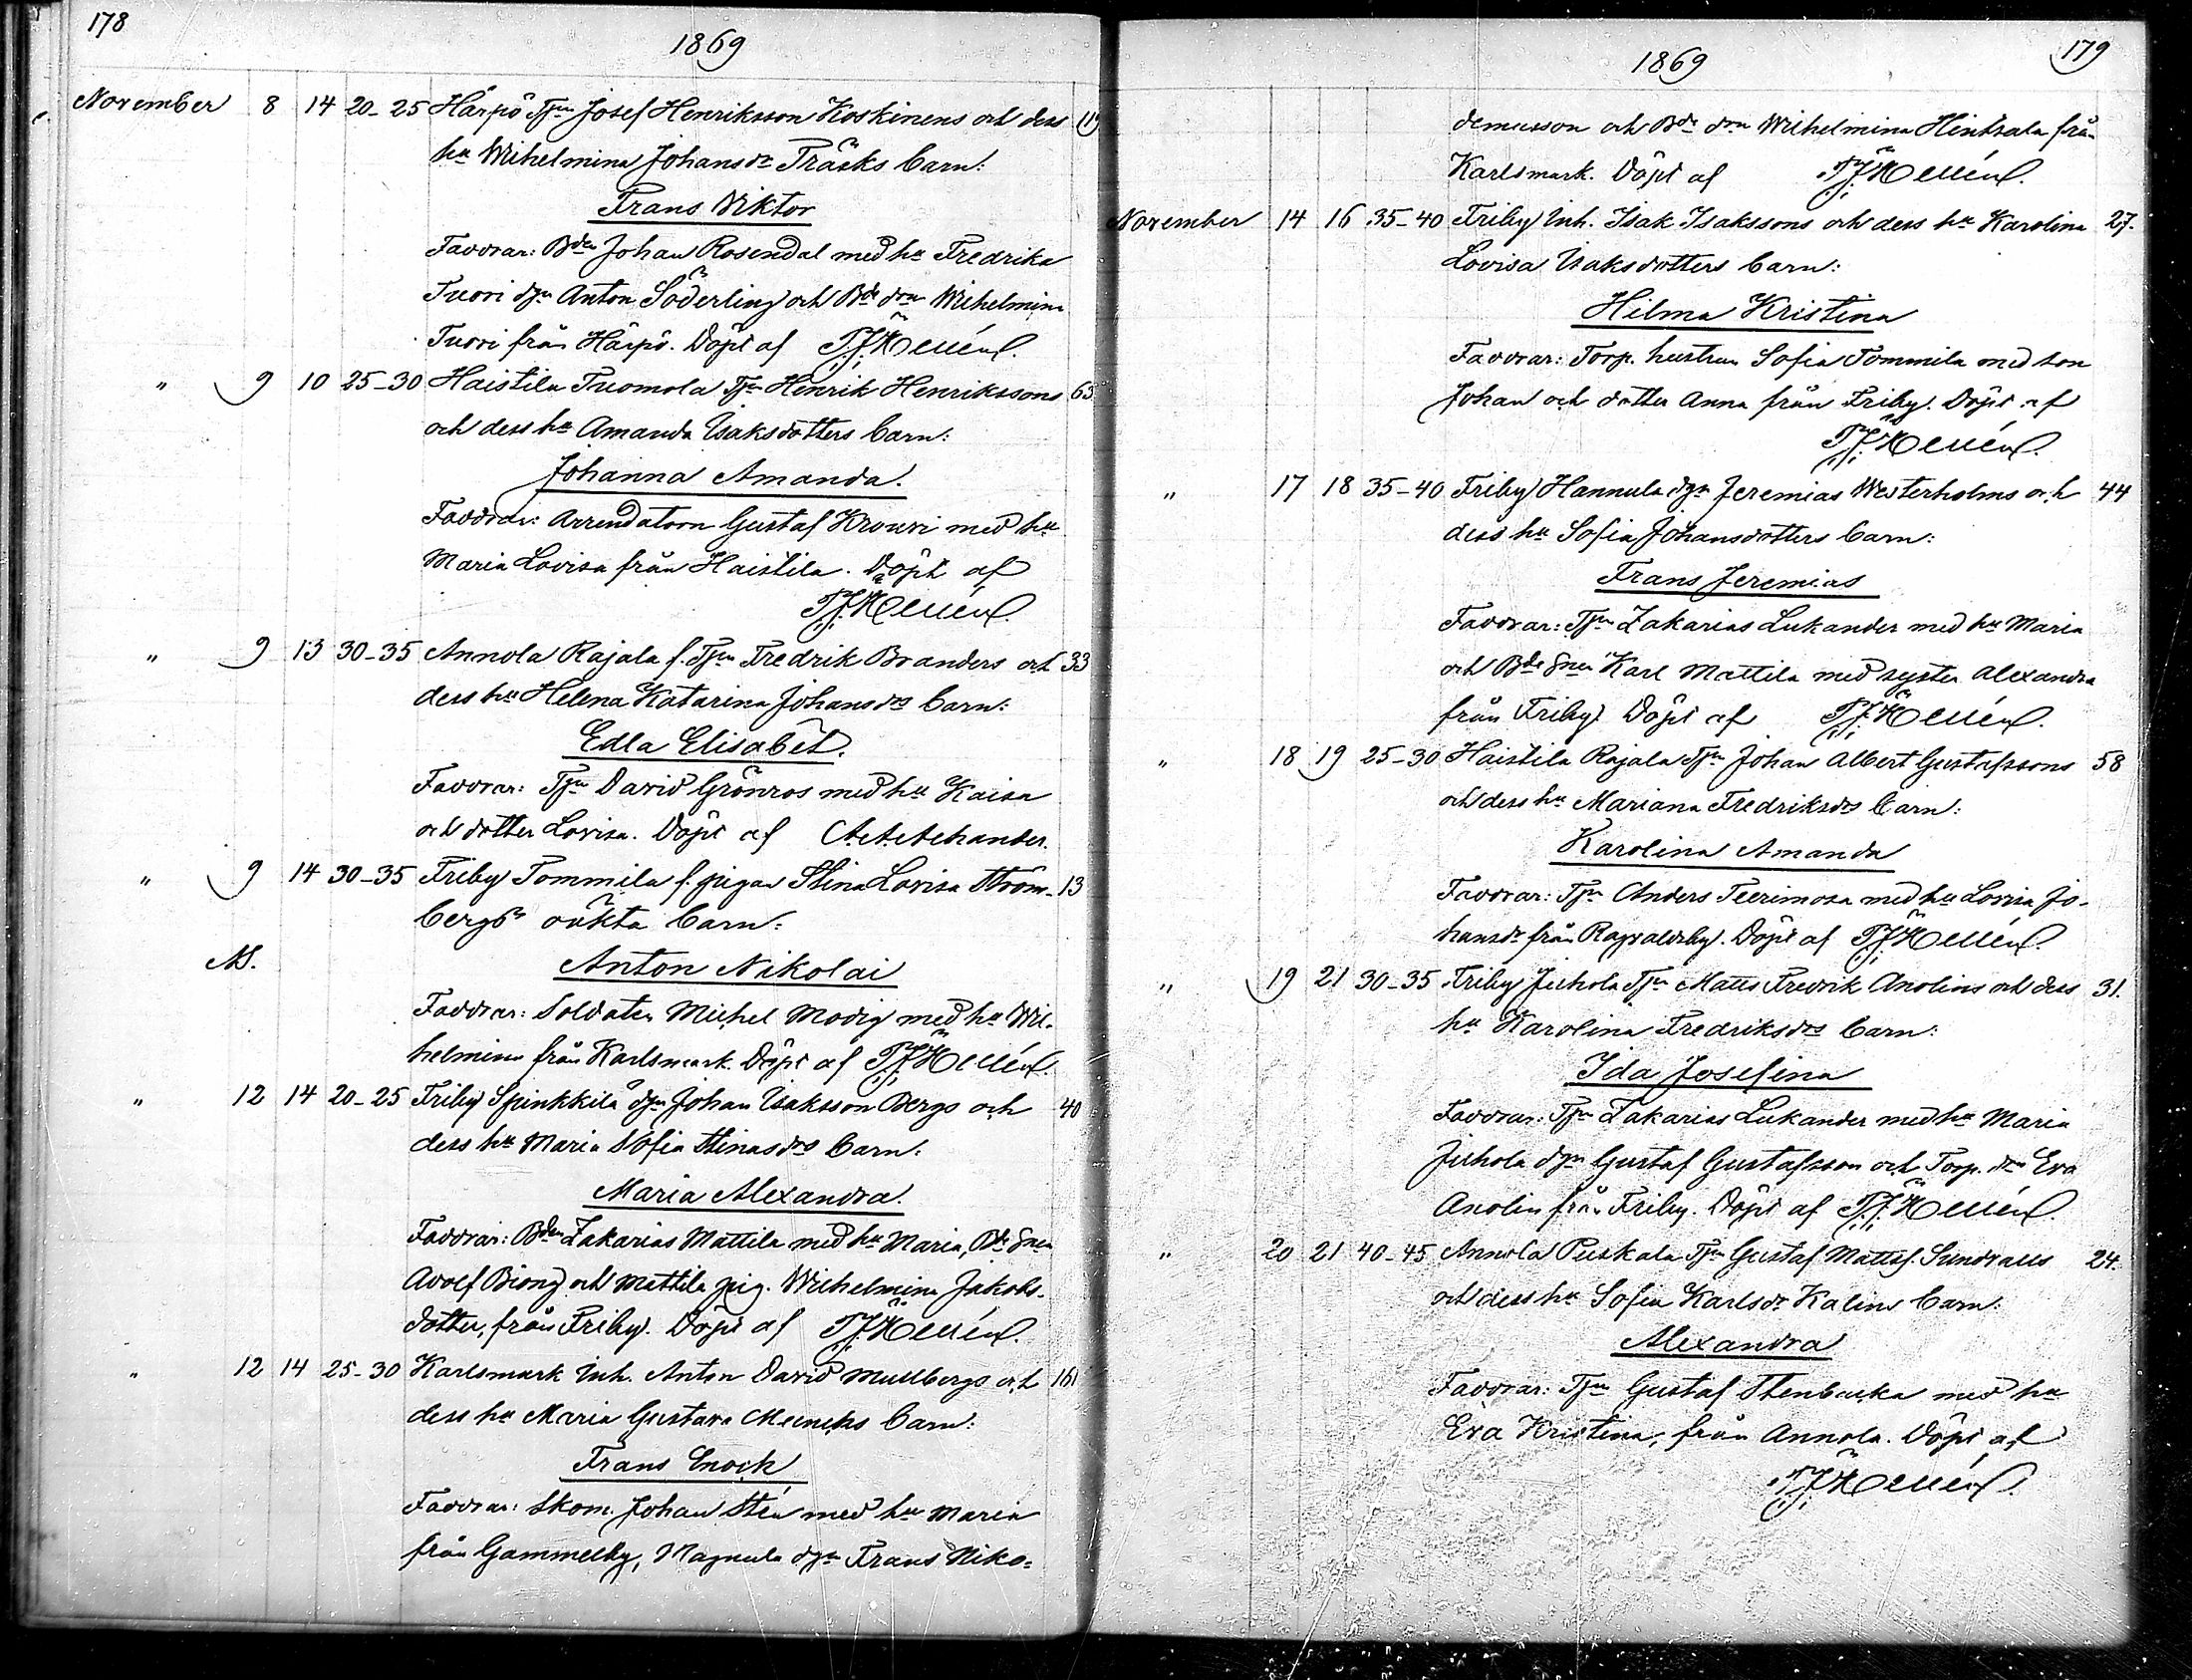 178
1869
November 8 14 20-25 Härpö Tjn Josef Henriksson Koskinens och dess
hu Wihelmina Johansdr Träsks barn:
Frans Viktor
Faddrar: Bden Johan Rosendal med hu Fredrika
Tuori dgn Anton Söderling och Bde drn Wilhelmina
Tuori från Härpö. Döpt af T.J. Hellén.
" 9 10 25-30 Haistila Tuomola Tjn Henrik Henrikssons 63
och dess hu Amanda Isaksdotters barn:
Johanna Amanda.
Faddrar: Arrendatorn Gustaf Krouvi med hu
Maria Lovisa från Haistila. Döpt af
T.J. Hellén.
" 9 13 30-35 Annola Rajala f. Tjn Fredrik Branders och 33
dess hu Helena Katarina Johansdrs barn:
Edla Elisabet.
Faddrar: Tjn David Grönros med hu Kaisa
och dotter Lovisa. Döpt af
" 9 14 30-35 Friby Tommila f. pigan Stina Lovisa Ström- 13
bergs oäkta barn:
Anton Nikolai
Faddrar: Soldaten Michel Modig med hu Wil-
helmina från Karlsmark. Döpt af T.J. Hellén.
" 12 14 20-25 Friby Spinkkilä dgn Johan Isaksson Bergs och 40
dess hu Maria Sofia Stinasdrs barn:
Maria Alexandra.
Faddrar: Bden Zakarias Mattila med hu Maria, Bde Snen
Adolf Biong och Mattila pig. Wilhelmina Jakobs-
dotter, från Friby. Döpt af T.J. Hellén.
" 12 14 25-30 Karlsmark Inh. Anton David Mullbergs och 161
dess hu Maria Gustava barn:
Frans Enock
Faddrar: Skom. Johan Stén med hu Maria
från Gammelby, Magnula dgn Frans Niko-
179
1869
demusson och Bde drn Wilhelmina Hintsala från
Karlsmark. Döpt af T.J. Hellén.
November 14 16 35-40 Friby Inh. Isak Isakssons och dess hu Karolina 27.
Lovisa Isaksdotters barn:
Hilma Kristina
Faddrar: Torp. hustrun Sofia Tommila med son
Johan och dotter Anna från Friby. Döpt af
T.J. Hellén.
" 17 18 35-40 Friby Hannula dgn Jeremias Westerholms och 44
dess hu Sofia Johansdotters barn:
Frans Jeremias
Faddrar: Tjn Zakarias Lukander med hu Maria
och Bde Snen Karl Mattila med syster Alexandra
från Friby. Döpt af T.J. Hellén.
" 18 19 25-30 Haistila Rajala Tjn Johan Albert Gustafssons 58
och dess hu Mariana Fredriksdrs barn:
Karolina Amanda
Faddrar: Tjn Anders Teerimosa med hu Lovisa Jo-
hansdr från Ragvaldsby. Döpt af T.J. Hellén.
" 19 21 30-35 Friby Juhola Tjn Matts Fredrik Anolins och dess 31.
hu Karolina Fredriksdrs barn:
Ida Josefina
Faddrar: Tjn Zakarias Lukander med hu Maria
Juhola dgn Gustaf Gustafsson och Torp. drn Eva
Anolin från Friby. Döpt af T.J. Hellén.
" 20 21 40-45 Annola Puskala Tjn Gustaf Mattsf. Sundvalls 24.
och dess hu Sofia Karlsdr Kalins barn:
Alexandra
Faddrar: Tjn Gustaf Stenbacka med hu
Eva Kristina, från Annola. Döpt af
T.J. Hellén.